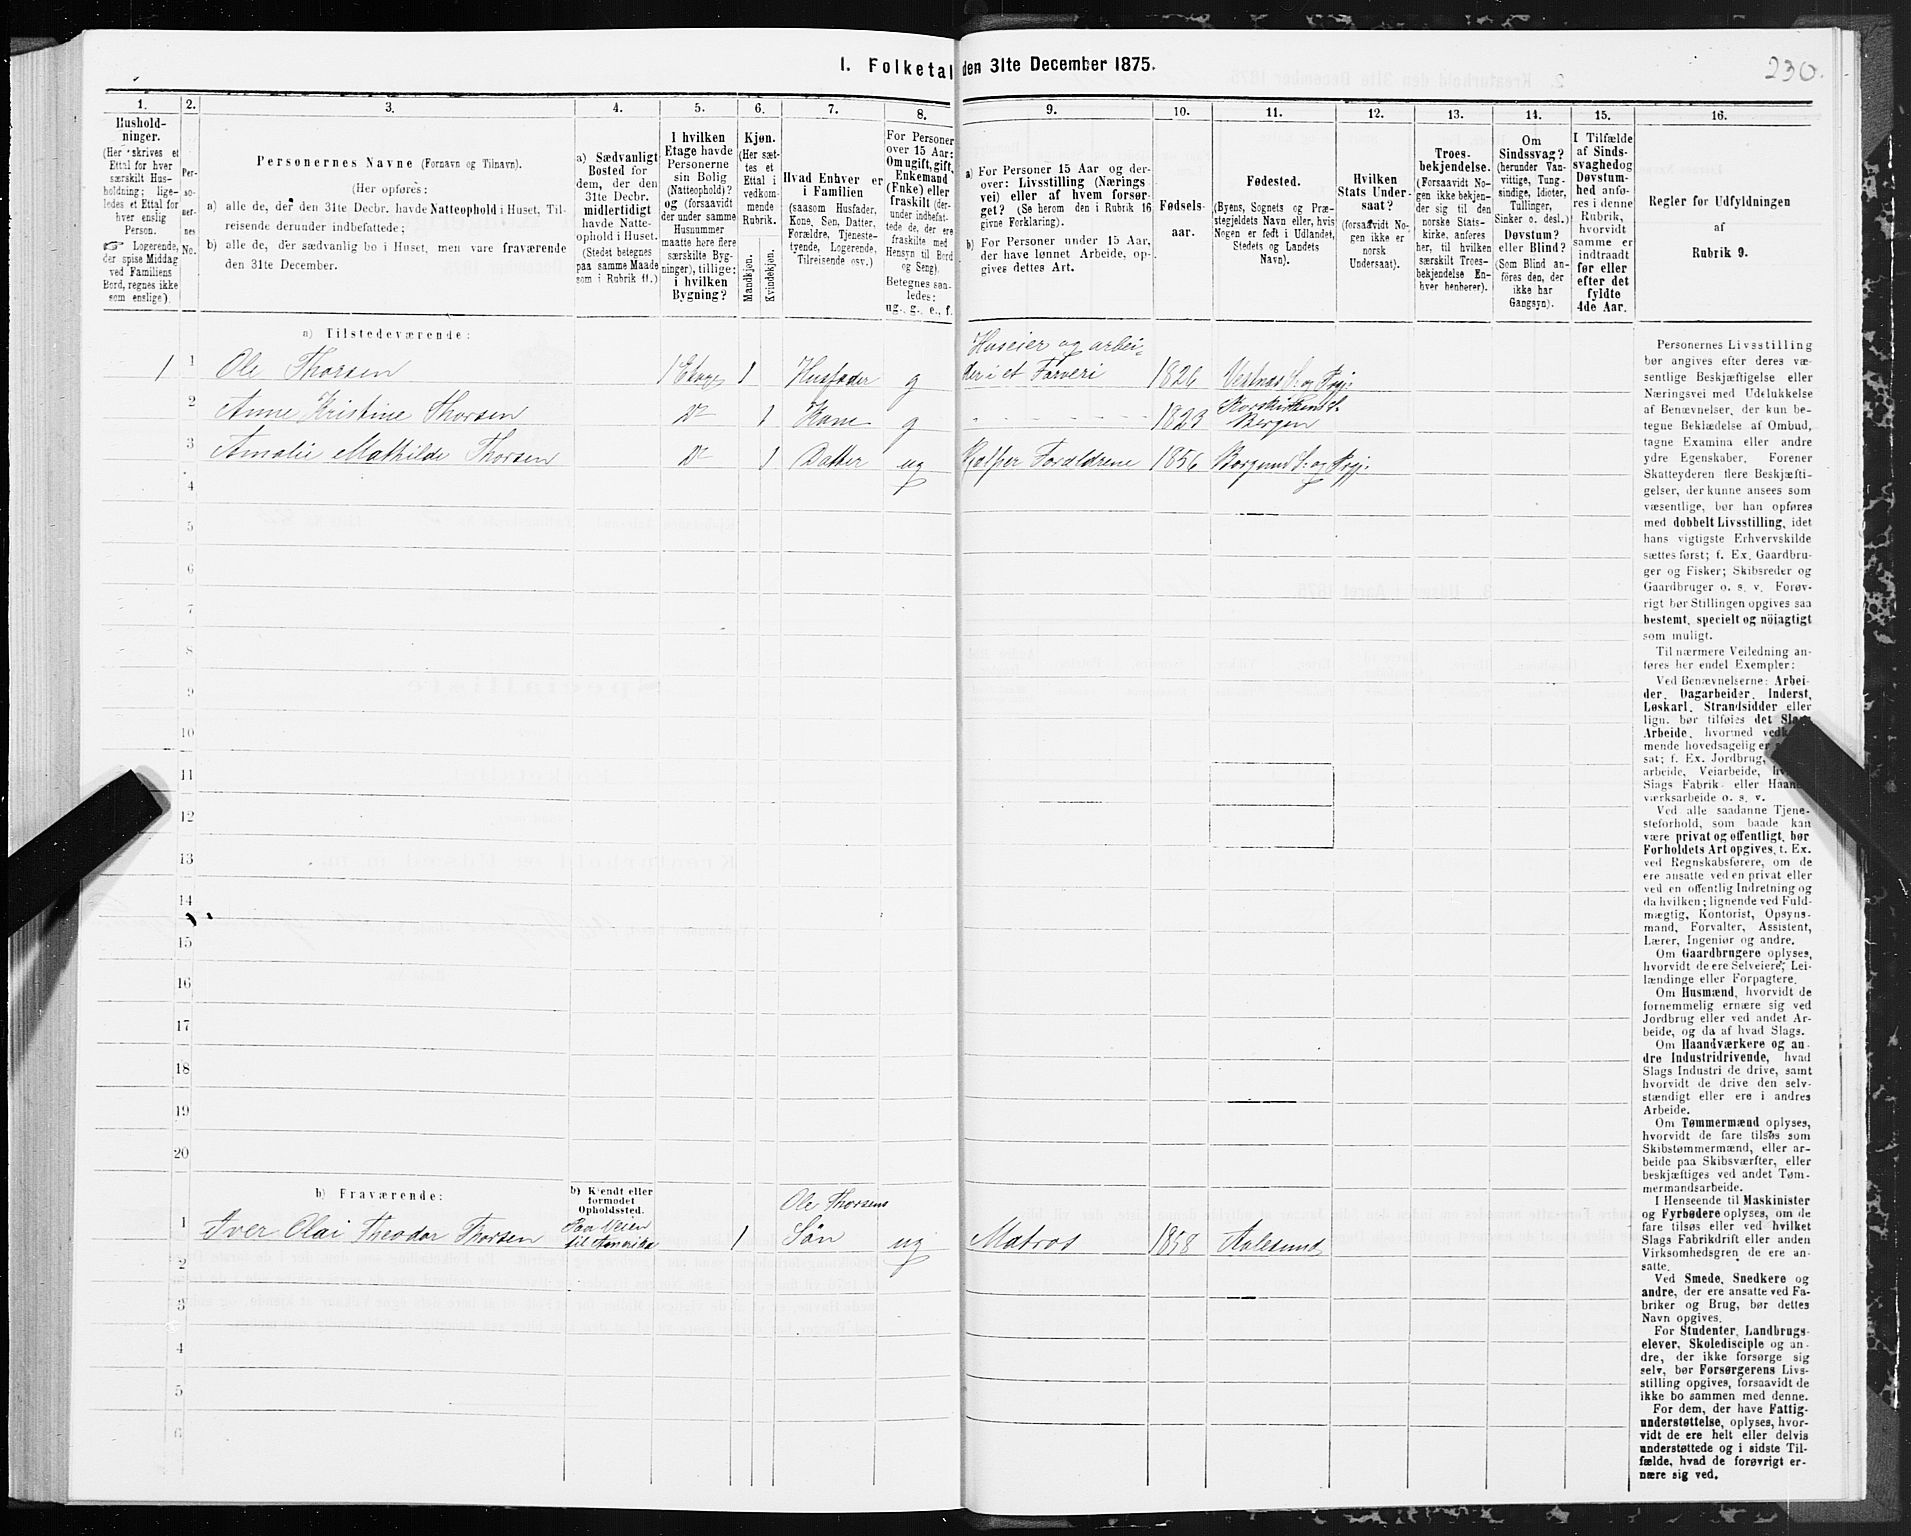 230.
I. Folketal den 31te December 1875.
1.
2.
3.
4.
5.
6.
7.
8.
9.
10.
11.
12.
13.
14.
15.
16.
Hushold-
ninger.
(Her skrives et
Ettal for hver
særskilt Hus-
holdning; lige-
ledes et Ettal for
hver enslig
Person.
Logerende,
der spise Middag
ved Familiens
Bord, regnes ikke
som enslige).
Per-
so-
ner-
nes
No.
Personernes Navne (Fornavn og Tilnavn).
(Her opføres:
a) alle de, der den 31te Decbr. havde Natteophold i Huset, Til-
reisende derunder indbefattede;
b) alle de, der sædvanlig bo i Huset, men vare fraværende
den 31te December.
a) Sædvanligt
Bosted for
dem, der den
31te Decbr.
midlertidigt
havde Natte-
ophold i Huset.
(Stedet betegnes
paa samme Maade
som i Rubrik 11.)
I hvilken
Etage havde
Personerne
sin Bolig
(Natteophold)?
og (forsaavidt
der under samme
Husnummer
maatte here flere
særskilte Byg-
ninger), tillige:
i hvilken
Bygning?
Kjøn.
(Her sæt-
tes et
Ettal i
vedkom-
mende
Rubrik.
Mandkjøn.
Kvindekjøn.
Hvad Enhver er
i Familien
(saasom Husfader,
Kone, Søn, Datter,
Forældre, Tjeneste-
tyende, Logerende,
Tilreisende osv.)
For Personer
over 15 Aar:
Om ugift, gift,
Enkemand
(Enke) eller
fraskilt (der-
under indbefat-
tede de, der ere
fraskilte med
Hensyn til Bord
og Seng).
Betegnes saa-
ledes:
ug., g., e., f.
a) For Personer 15 Aar og der-
over: Livsstilling (Nærings
vei) eller af hvem forsør-
get? (Se herom den i Rubrik 16
givne Forklaring).
b) For Personer under 15 Aar,
der have lønnet Arbeide, op-
gives dettes Art.
Fødsels-
aar.
Fødested.
(Byens, Sognets og Præ-
stegjeldets Navn eller, hvis
Nogen er født i Udlandet,
Stedets og Landets
Navn).
Hvilken
Stats Under-
saat?
(forsaavidt No-
gen ikke er
norsk
Undersaat).
Troes-
bekjendelse.
(Forsaavidt No-
gen ikke bekjen-
der sig til den
norske Stats-
kirke, anføres
her, til hvilken
særskilt Troes-
bekjendelse En-
hver henhører).
Om
Sindssvag?
(herunder Van-
vittige, Tung-
sindige, Idioter,
Tullinger,
Sinker o. desl.)
Døvstum?
eller Blind?
(Som Blind an-
føres den, der
ikke har
Gangsyn).
I Tilfælde
af Sinds-
svaghed og
Døvstum-
hed anfø-
res i denne
Rubrik,
hvorvidt
samme er
indtraadt
før eller
efter det
fyldte
4de Aar.
Regler før Udfyldningen
af
Rubrik 9.
a) Tilstedeværende:
1 1 Ole Thorsen 1 Etage 1 Husfader g Huseier og arbei-
der i et Farveri 1826 Vestnæs S. og Prgj.
2 Anne Kristine Thorsen Do 1 Kone g 1823 Korskirkens S. Bergen
3 Amalie Mathilde Thorsen Do 1 Datter ug Hjelper Forældrene 1856 Borgund S. og Prgj.
4
5
6
7
8
9
10
11
12
13
14
15
16
17
18
19
20
b) Fraværende:
b) Kjendt eller
formodet
Opholdssted.
1 Iver Olai Theodor Thorsen Paa Veien til Amerika 1 Ole Thorsens Søn ug Matros 1858 Aalesund
2
3
4
5
6
Personernes Livsstilling
bør angives efter deres væ-
sentlige Beskjæftigelse eller
Næringsvei med Udelukkelse
af Benævnelser, der kun be-
tegne Beklædelse af Ombud,
tagne Examina eller andre
ydre Egenskaber. Forener
Skatteyderen flere Beskjæfti-
gelser, der kunne ansees som
væsentlige, bør han opføres
med dobbelt Livsstilling, idet
hans vigtigste Erhvervskilde
sættes først; f. Ex. Gaardbru-
ger og Fisker; Skibsreder og
Gaardbruger o. s. v. Forøv-
rigt bør Stillingen opgives saa
bestemt, specielt og nöiagtigt
som muligt.
Til nærmere Veiledning an-
føres her endel Exempler:
Ved Benævnelserne: Arbei-
der, Dagarbeider, Inderst,
Løskarl, Strandsidder eller
lign. bør tilføies det Slags
Arbeide, hvormed vedkom-
mende hovedsagelig er
sat; f. Ex. Jordbrug,
arbeide, Veiarbeide,
Slags Fabrik- eller Haand-
værksarbeide o. s. v.
Ved alle saadanne Tjene-
steforhold, som baade kan
være privat og offentligt, bør
Forholdets Art opgives, t. Ex.
ved Regnskabsførere, om de
ere ansatte ved en privat eller
ved en offentlig Indretning og
da hvilken; lignende ved Fuld-
mægtig, Kontorist, Opsyns-
mand, Forvalter, Assistent,
Lærer, Ingeniør og andre.
Om Gaardbrugere oplyses,
hvorvidt de ere Selveiere, Lei-
lændinge eller Forpagtere.
Om Husmænd, hvorvidt de
fornemmelig ernære sig ved
Jordbrug eller ved andet Ar-
beide, og da af hvad Slags.
Om Haandværkere og an-
dre Industridrivende, hvad
Slags Industri de drive, samt
hvorvidt de drive den selv-
stændigt eller ere i andres
Arbeide.
Om Tømmermænd oplyses,
hvorvidt de fare tilsøs som
Skibstømmermænd, eller ar-
beide paa Skibsværfter, eller
beskjæftiges ved andet Tøm-
mermandsarbeide.
I Henseende til Maskinister
og Fyrbødere oplyses, om de
fare tilsøs eller ved hvilket
Slags Fabrikdrift eller anden
Virksomhedsgren de ere an-
satte.
Ved Smede, Snedkere og
andre, der ere ansatte ved Fa-
briker og Brug, bør dettes
Navn opgives.
For Studenter, Landbrugs-
elever, Skoledisciple og an-
dre, der ikke forsørge sig
selv, bør Forsørgerens Livs-
stilling opgives, forsaavidt de
ikke bo sammen med denne.
For dem, der have Fattig-
understøttelse, oplyses, hvor-
vidt de ere helt eller delvis
understøttede og i sidste Til-
fælde, hvad de forøvrigt er-
nære sig ved.